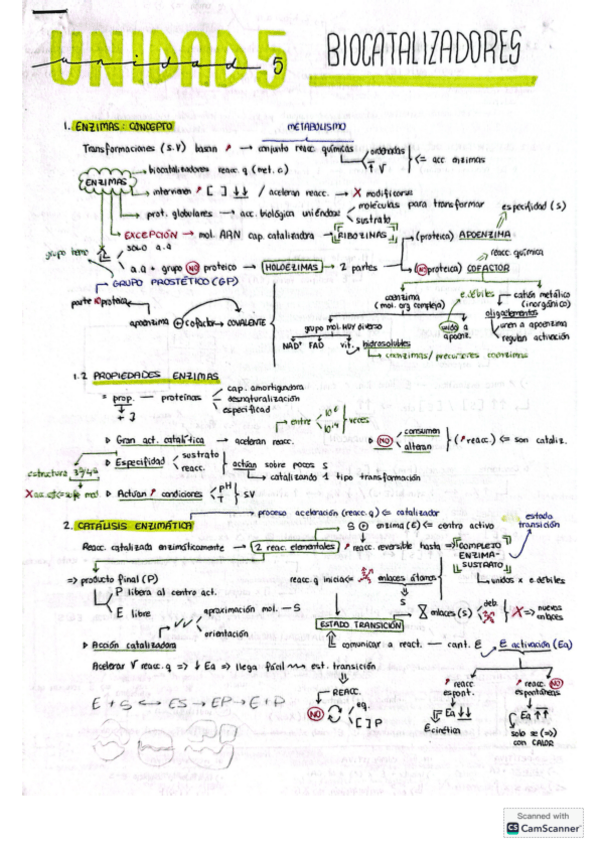 UNIDAD 5
unidad 5
BIOCATALIZADORES
1. ENZIMAS: CONCEPTO
METABOLISMO
Transformaciones (s.v) basan → conjunto reacc químicas
ordenadas
↑ V
<= acc enzimas
ENZIMAS
biocatalizadores reacc. q (met. a)
intervienen [ ] ↓↓ / aceleran reacc. → X modificarse
prot. globulares → acc. biológica uniéndose
moléculas para transformar
sustrato
especifidad (s)
EXCEPCIÓN → mol. ARN cap. catalizadora → RIBOZIMAS
(proteica) APOENZIMA
reacc. química
grupo hemo
SOLO a.a
a.a + grupo NO proteico → HOLOEZIMAS → 2 partes
(NO proteica) COFACTOR
GRUPO PROSTÉTICO (GP)
parte NO proteica
apoenzima + cofactor → COVALENTE
coenzima
(mol. org compleja)
e.débiles
catión metálico
(inorgánico)
oligoelementos
unen a apoenzima
regulan activación
grupo mol MUY diverso
unido a
apoenz.
NAD⁺ FAD vit. hidrosolubles
coenzimas/ precursores coenzimas
1.2 PROPIEDADES ENZIMAS
= prop. — proteínas
cap. amortiguadora
desnaturalización
especificad
+ 3
Gran act. catalítica → aceleran reacc.
entre
10⁶
10¹⁴
veces
NO
consumen
alteran
(reacc.) <= son cataliz.
Especifidad
sustrato
reacc.
actúan sobre pocos s
catalizando 1 tipo transformación
estructura 3ª/4ª
Actúan condiciones
pH
T
SV
2. CATÁLISIS ENZIMÁTICA
proceso aceleración (reacc.q) <= catalizador
S + enzima (E) <= centro activo
estado
transición
Reacc. catalizada enzimáticamente → 2 reac. elementales
reacc. reversible hasta =>
COMPLEJO
ENZIMA-
SUSTRATO
unidos x e.débiles
=> producto final (P)
P libera al centro act.
E libre
reacc. q inicia <=
enlaces átomos
S
enlaces (s)
deb.
X => nuevos
enlaces
aproximación mol. — S
orientación
ESTADO TRANSICIÓN
comunicar a react. — cant. E
E activación (Ea)
Acción catalizadora
Acelerar V reacc. q => ↓ Ea => llega fácil est. transición
REACC.
NO
eq.
[ ] P
reacc
espont.
Ea ↓↓
E cinética
reacc. NO
espontáneas
Ea ↑↑
solo se (=>)
con CALOR
E + S <-> ES → EP → E + P
Scanned with
CS CamScanner